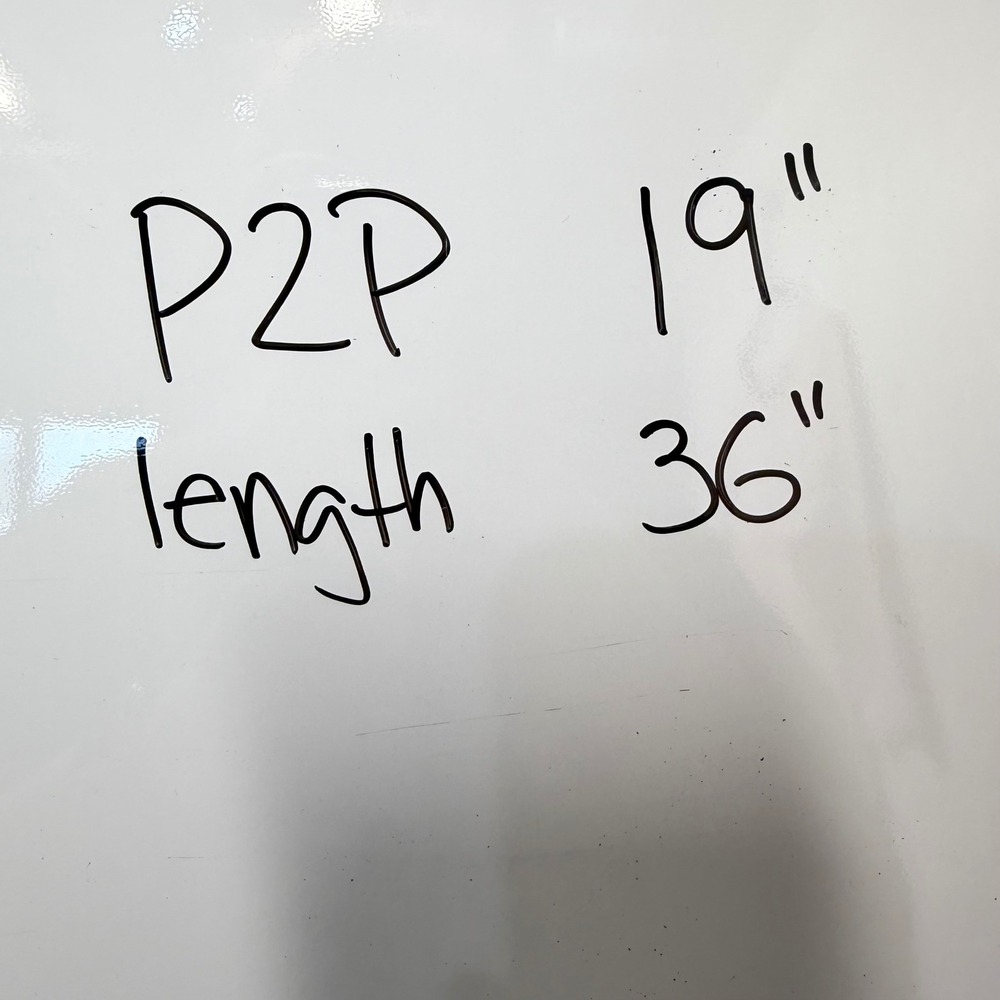 P2P 19"
length 36"